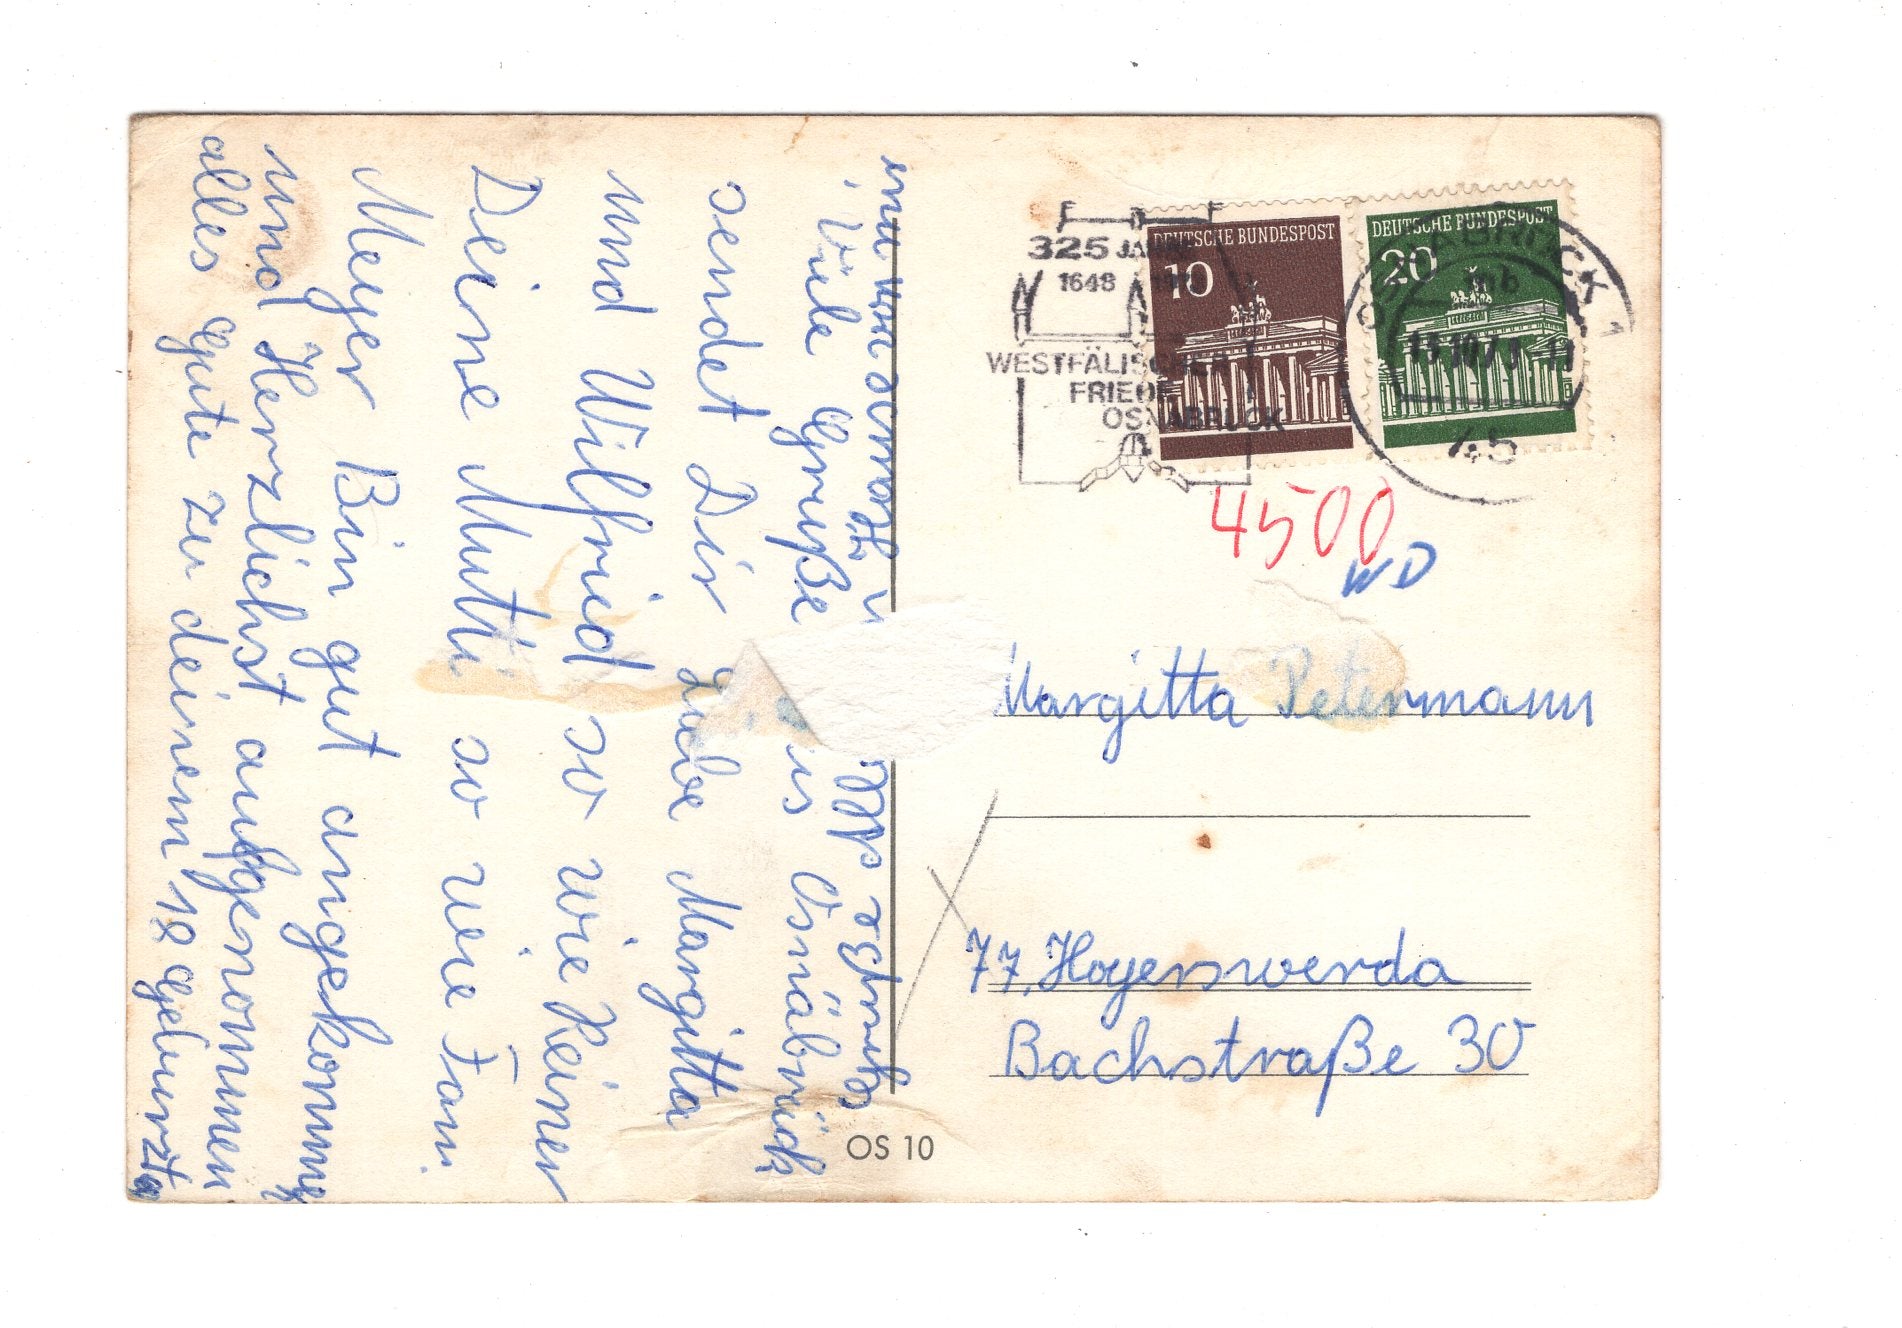 Viele Grüße is Osnábrück
sendet Dir Liebe Margitta
und Wilfried so wie Reiner
Deine Mutti so wie Fam
Meyer Bin gut angekomme
und Herzlichst aufgenommen
alles Gute zu deinem 18 Geburzta
325
1648
WESTFÄLISCHER
FRIEDE
OSNABRÜCK
DEUTSCHE BUNDESPOST
10
DEUTSCHE BUNDESPOST
20
OSNABRÜCK 1
mb
45
4500
WD
Margitta Petermann
77, Hoyerswerda
Bachstraße 30
OS 10